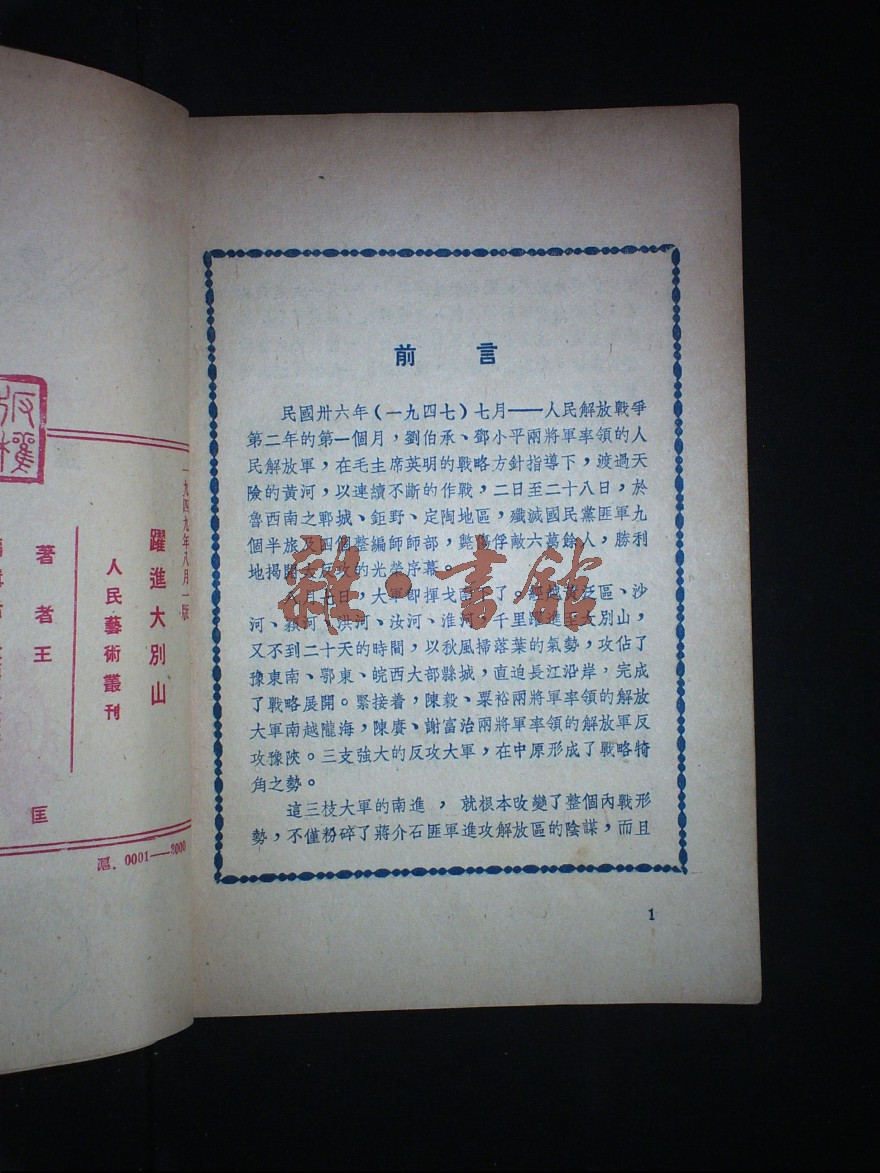 前言
民國卅六年(一九四七)七月——人民解放戰爭
第二年的第一個月，劉伯承、鄧小平兩將軍率領的人
民解放軍，在毛主席英明的戰略方針指導下，渡過天
險的黃河，以連續不斷的作戰，二日至二十八日，於
魯西南之鄆城、鉅野、定陶地區，殲滅國民黨匪軍九
個半旅及四個整編師師部，斃傷俘敵六萬餘人，勝利
地揭開大反攻的光榮序幕。
八月七日，大軍即揮戈南下了。經越黃泛區、沙
河、潁河、洪河、汝河、淮河，千里躍進至大別山，
又不到二十天的時間，以秋風掃落葉的氣勢，攻佔了
豫東南、鄂東、皖西大部縣城，直迫長江沿岸，完成
了戰略展開。緊接着，陳毅、粟裕兩將軍率領的解放
大軍南越隴海，陳賡、謝富治兩將軍率領的解放軍反
攻豫陝。三支強大的反攻大軍，在中原形成了戰略犄
角之勢。
這三枝大軍的南進，就根本改變了整個內戰形
勢，不僅粉碎了蔣介石匪軍進攻解放區的陰謀，而且
1
雜·書館
一九四九年八月一版
躍進大別山
人民藝術叢刊
著者王匡
滬．0001—3000
版權